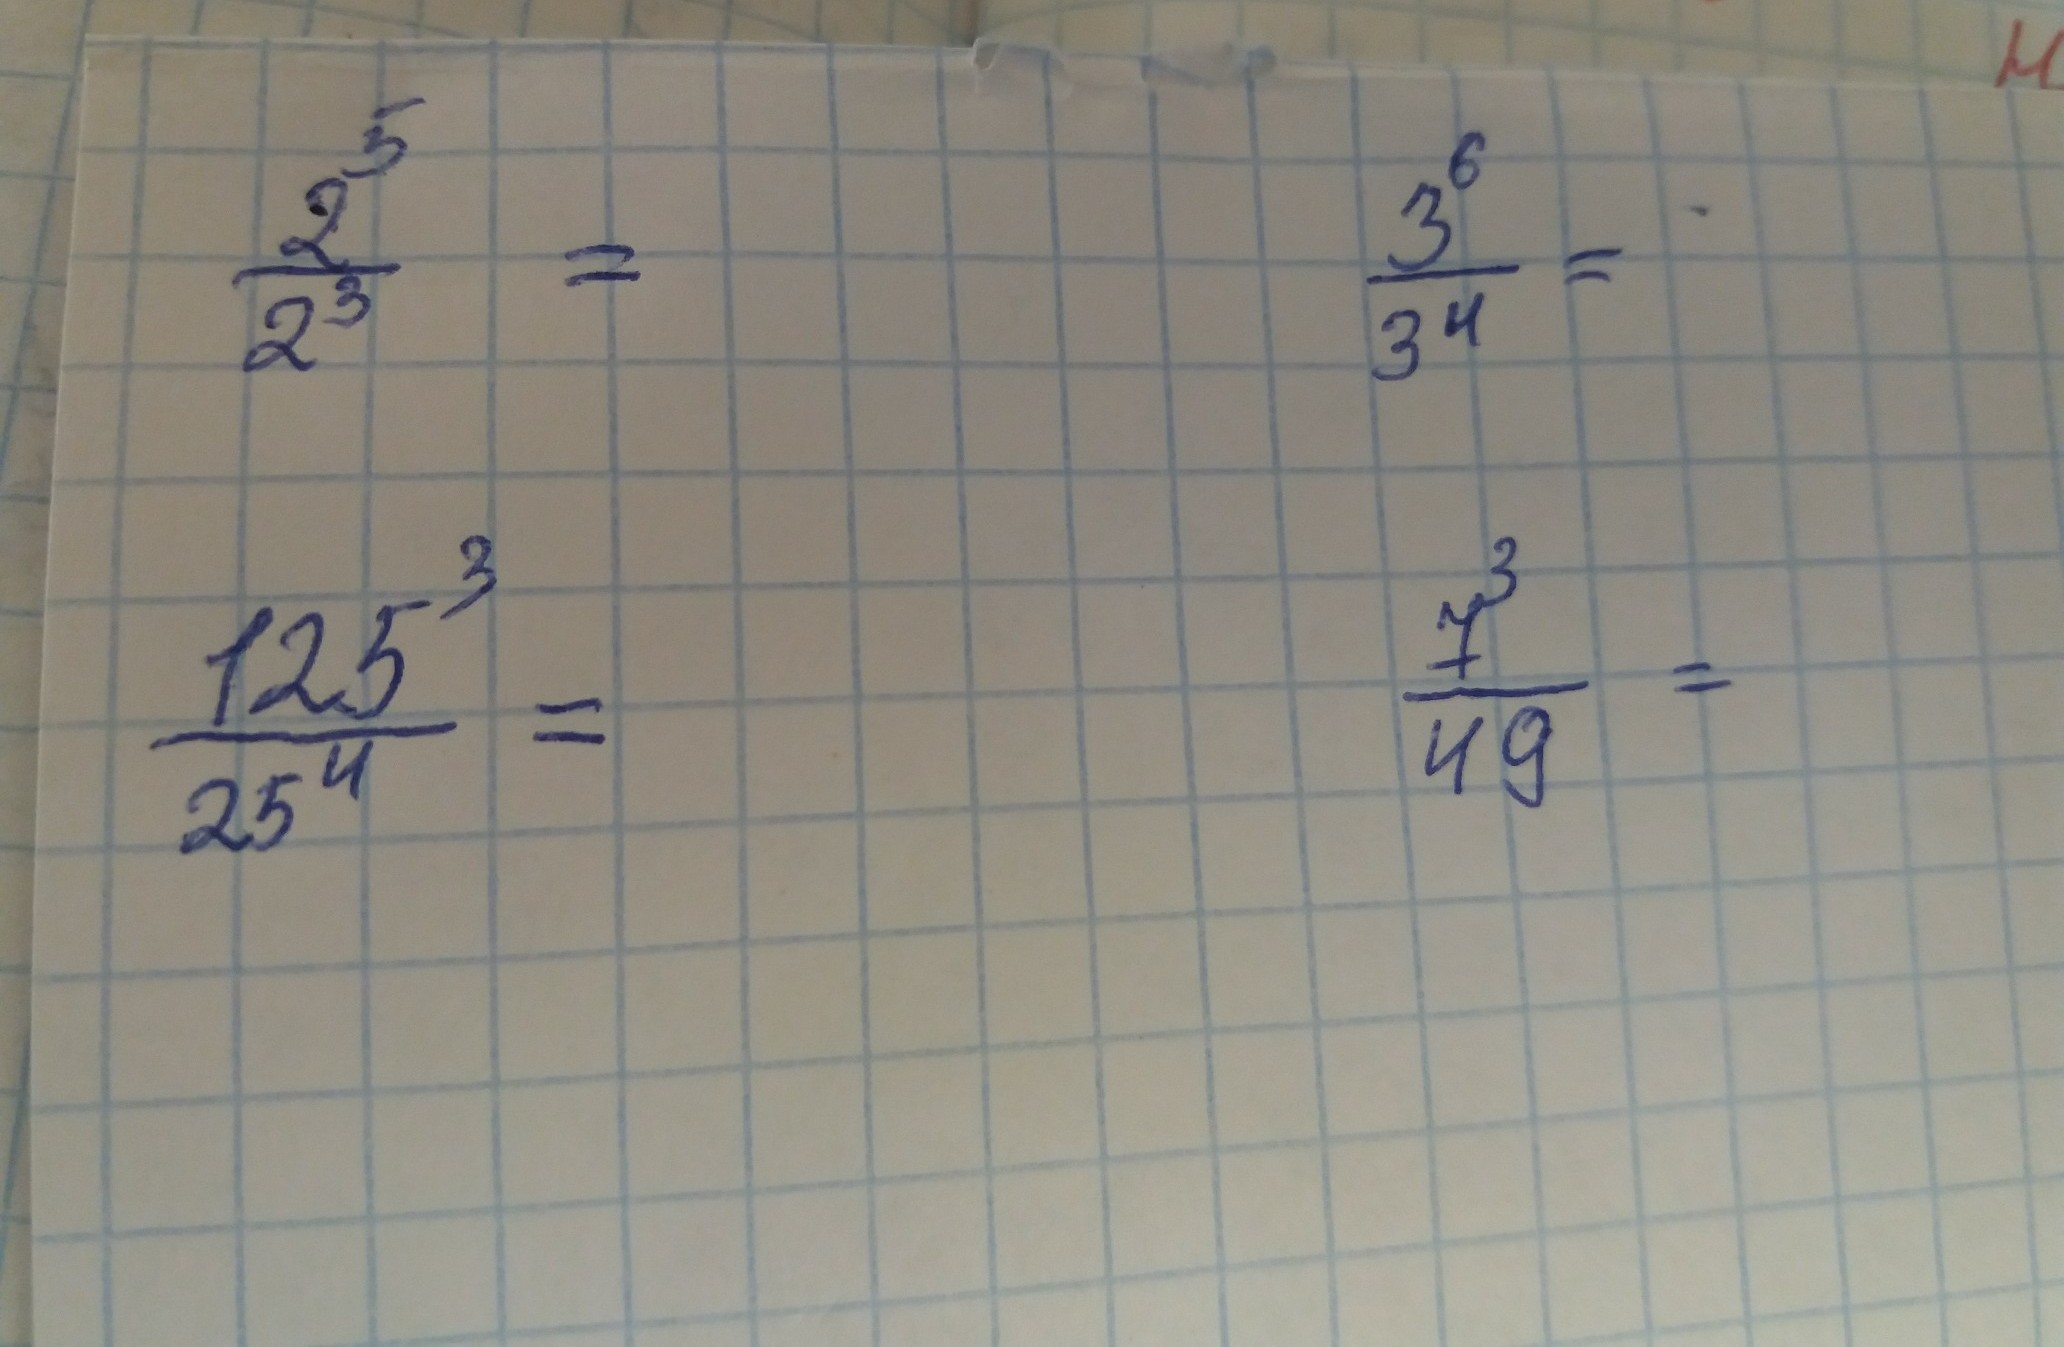 2⁵/2³ = 3⁶/3⁴ =
125³/25⁴ = 7³/49 =